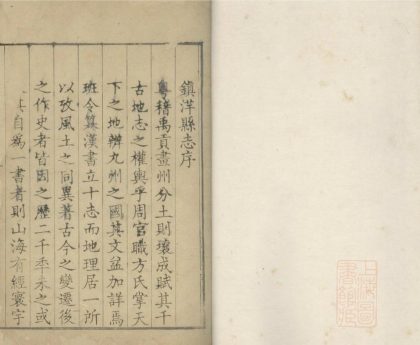 鎮洋縣志序
粵稽禹貢畫州分土則壤成賦其千
古地志之權輿乎周官職方氏掌天
下之地辨九州之國其文益加詳焉
班令纂漢書立十志而地理居一所
以攷風土之同異著古今之變遷後
之作史者皆因之歷二千年未之或
自為一書者則山海有經寰宇
上海圖書館藏